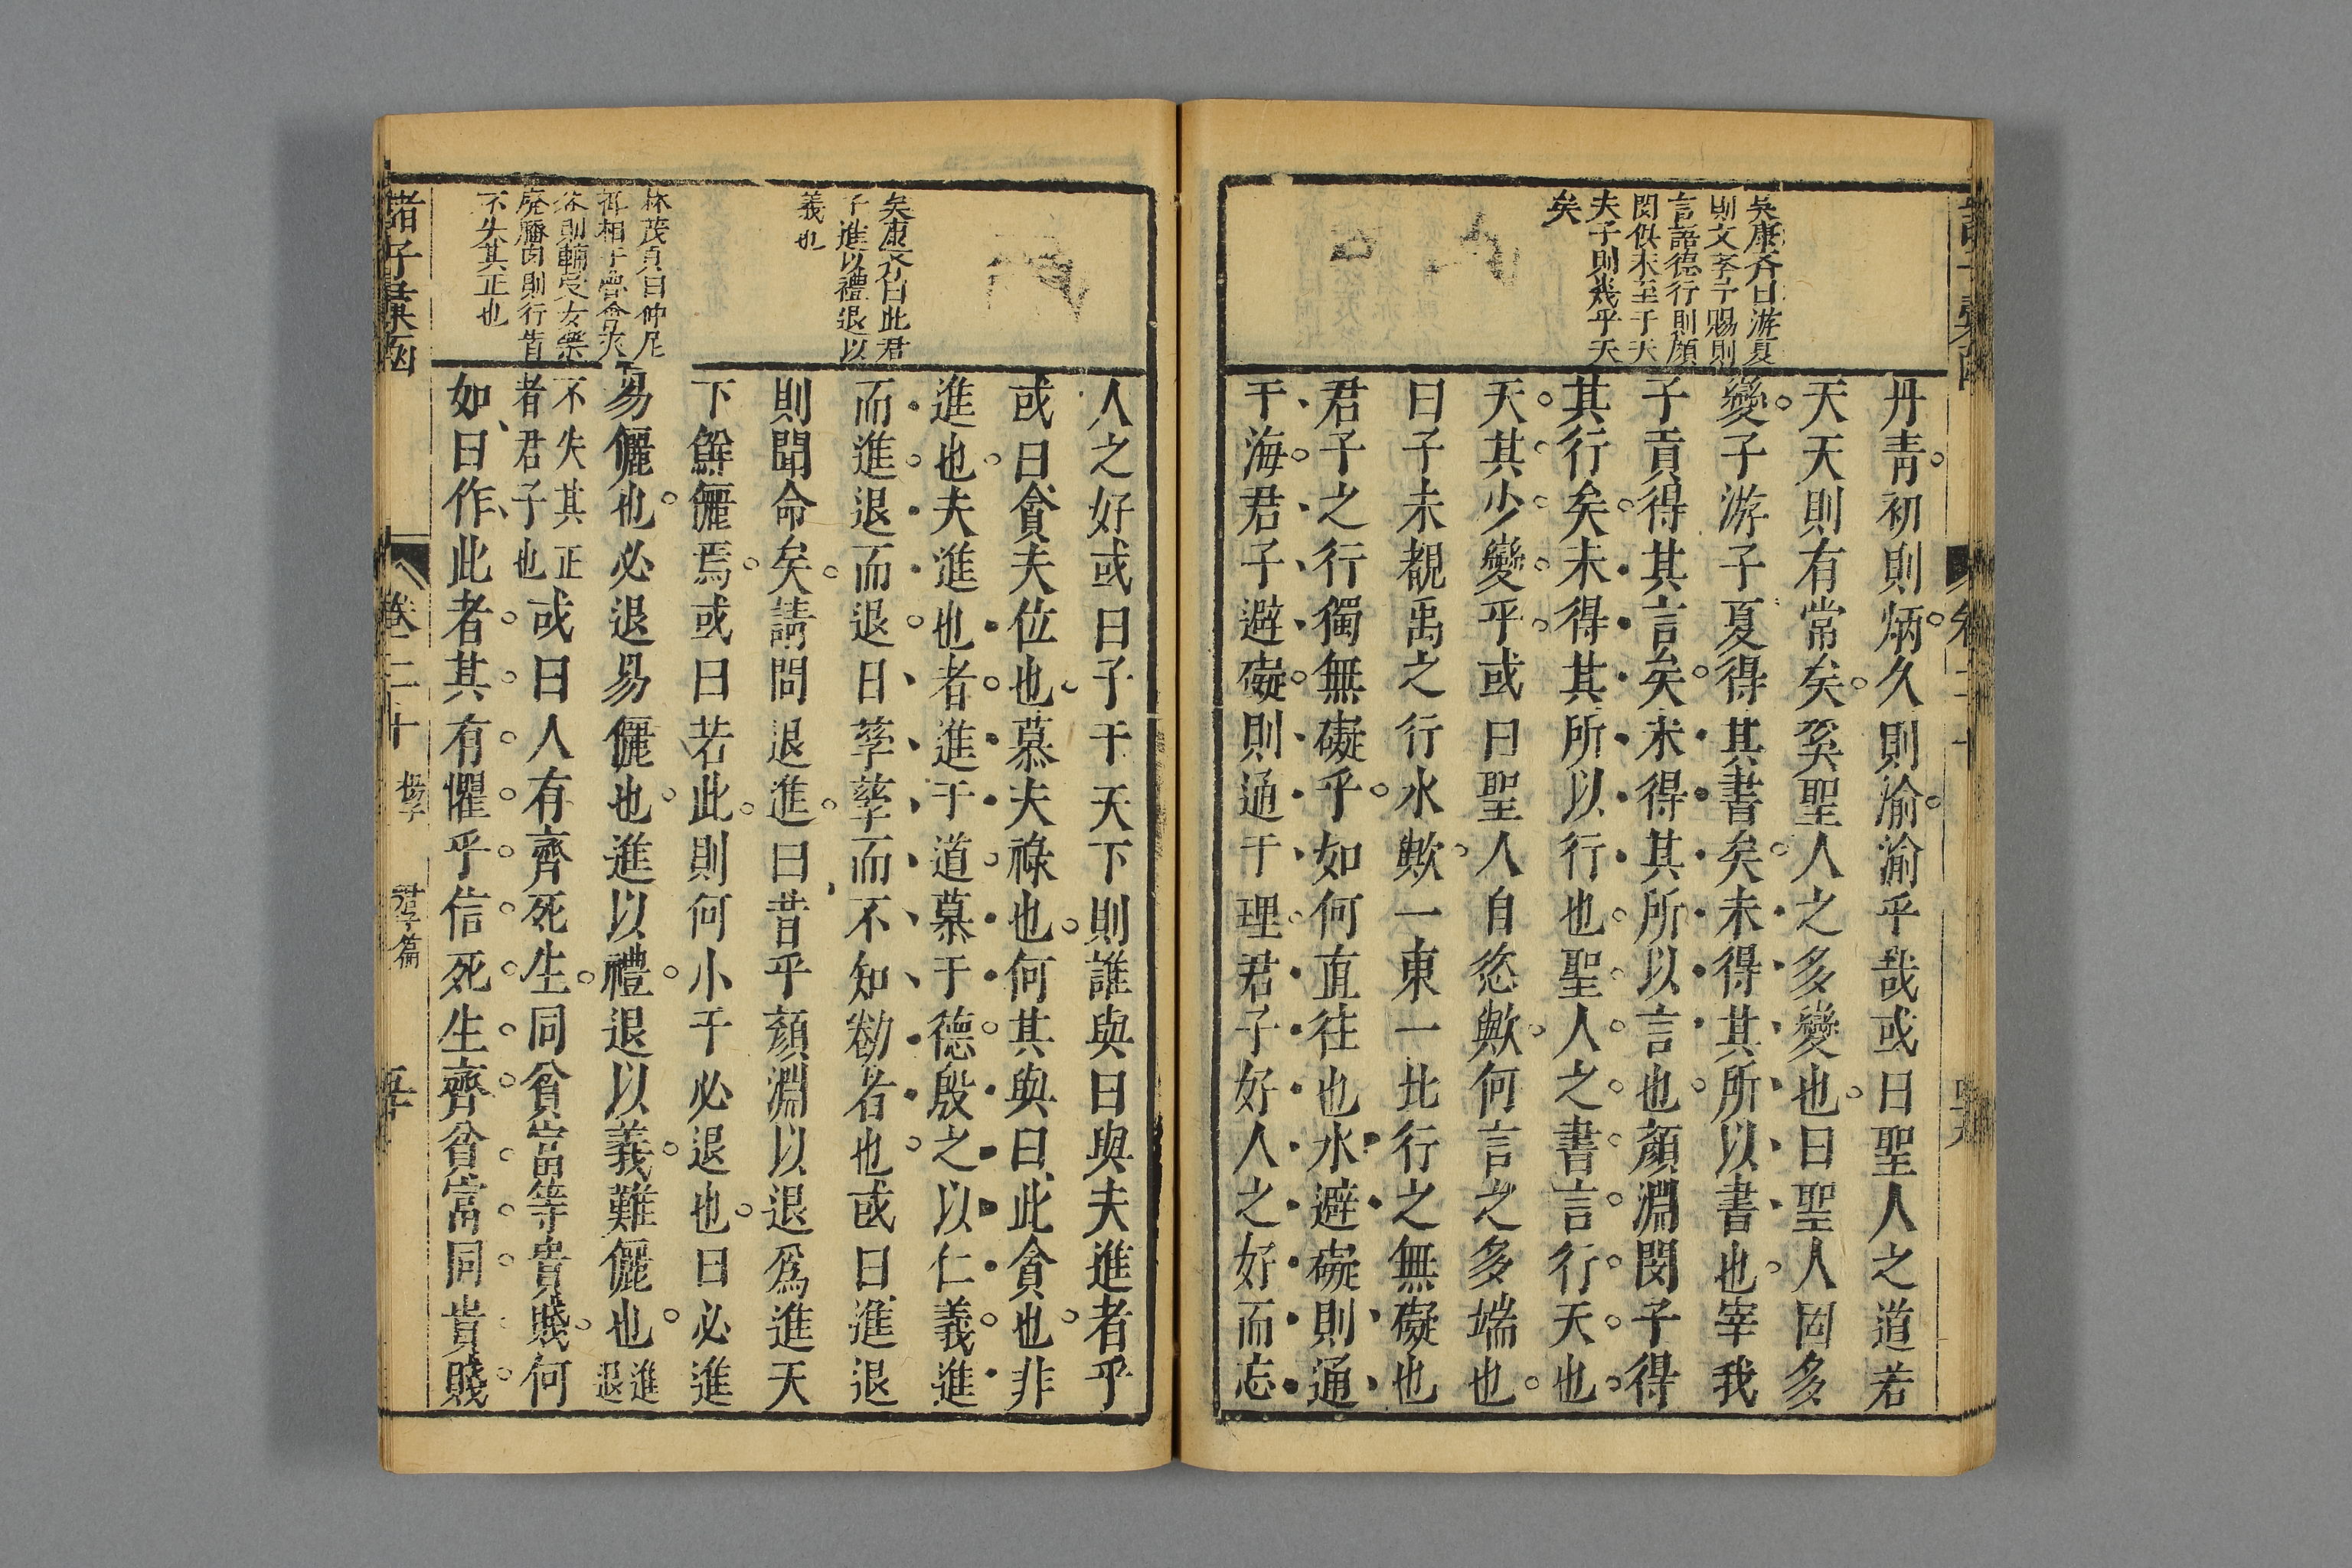 吳康齐曰游夏
則文李子賜則
言語德行則顔
閔似未至于天
夫子則幾乎天
矣
丹青初則炳久則渝渝乎哉或曰聖人之道若
天天則有常矣奚聖人之多變也曰聖人固多
變子游子夏得其書矣未得其所以書也宰我
子貢得其言矣未得其所以言也顔淵閔子得
其行矣未得其所以行也聖人之書言行天也
天其少變乎或曰聖人自恣歟何言之多端也
曰子未覩禹之行水歟一東一北行之無礙也
君子之行獨無礙乎如何直往也水避礙則通
于海君子避礙則通于理君子好人之好而忘
卷二十
矣康齐曰此君
子進以禮退以
義也
林茂貞曰仲尼
相于魯會夾
谷則輔受女樂
廢膰肉則行皆
不失其正也
人之好或曰子于天下則誰與曰與夫進者乎
或曰貪夫位也慕夫祿也何其與曰此貪也非
進也夫進也者進于道慕于德殷之以仁義進
而進退而退日孳孳而不知勌者也或曰進退
則聞命矣請問退進曰昔乎顔淵以退爲進天
下鮮儷焉或曰若此則何小于必退也曰必進
易儷也必退易儷也進以禮退以義難儷也進退
不失其正
者君子也或曰人有齊死生同貧富等貴賤何
如曰作此者其有懼乎信死生齊貧富同貴賤
諸子彙函
卷二十
君子篇
五十